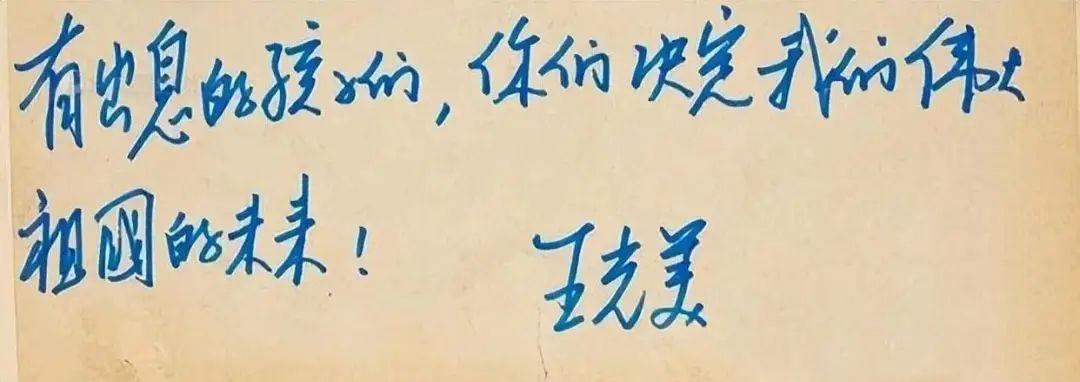 有出息的孩子们，你们决定我们伟大
祖國的未来！
王光美